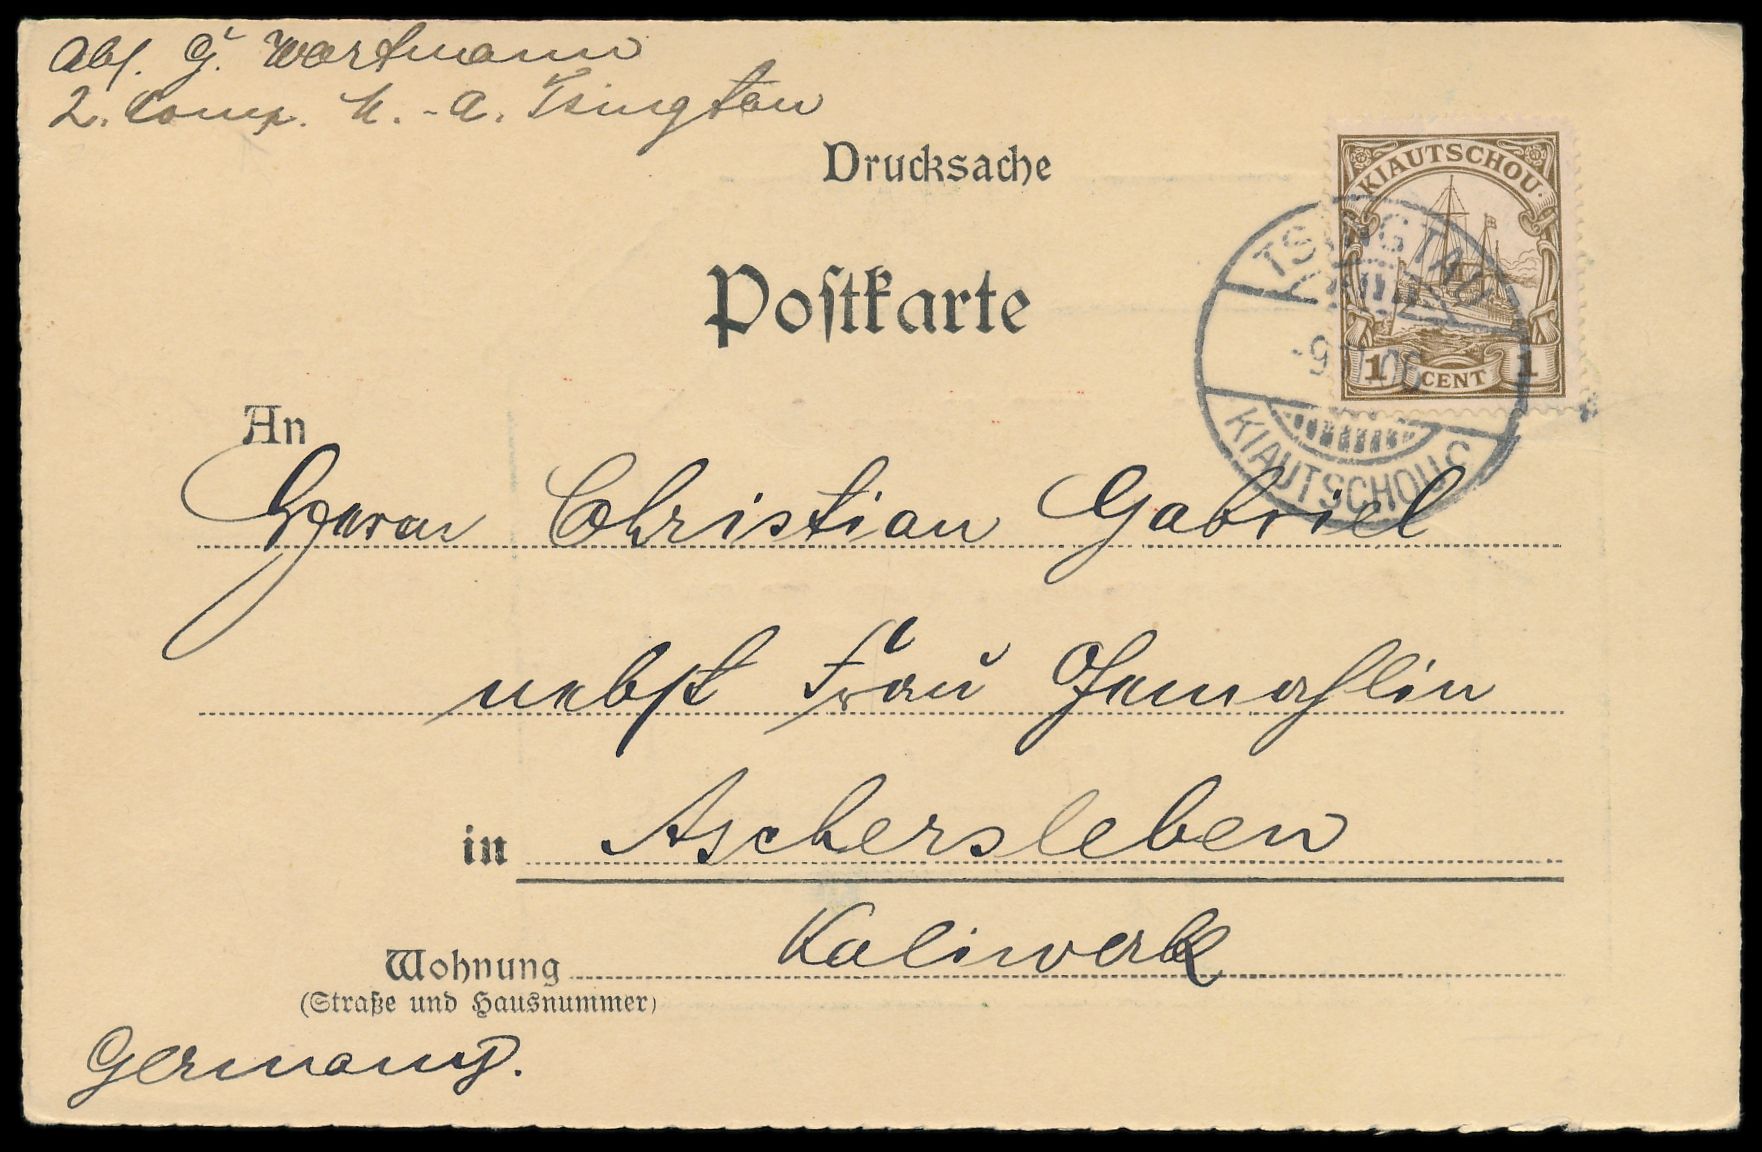 Abs. G. Wortmann
2. Comp. M.-A. Tsingtau
Drucksache
Postkarte
KIAUTSCHOU
1 CENT 1
TSINGTAU
KIAUTSCHOU C
An
Herrn Christian Gabriel
nebst Frau Gemahlin
in Aschersleben
Wohnung Kaliwerk
(Straße und Hausnummer)
Germany.